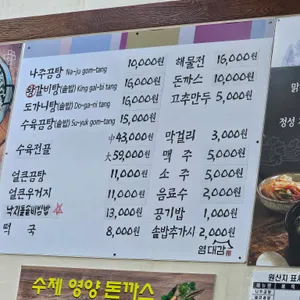 나주곰탕 Na-ju gom-tang 10,000원
왕갈비탕(솥밥) King gal-bi tang 16,000원
도가니탕(솥밥) Do-ga-ni tang 16,000원
수육곰탕(솥밥) Su-yuk gom-tang 15,000원
수육전골 中43,000원
大59,000원
얼큰곰탕 11,000원
얼큰우거지 11,000원
낙지돌솥비빔밥 13,000원
떡국 8,000원
해물전 16,000원
돈까스 10,000원
고추만두 5,000원
막걸리 3,000원
맥주 5,000원
소주 5,000원
음료수 2,000원
공기밥 1,000원
솥밥추가시 2,000원
엄대감
수제 영양 돈까스
정성
원산지 표시